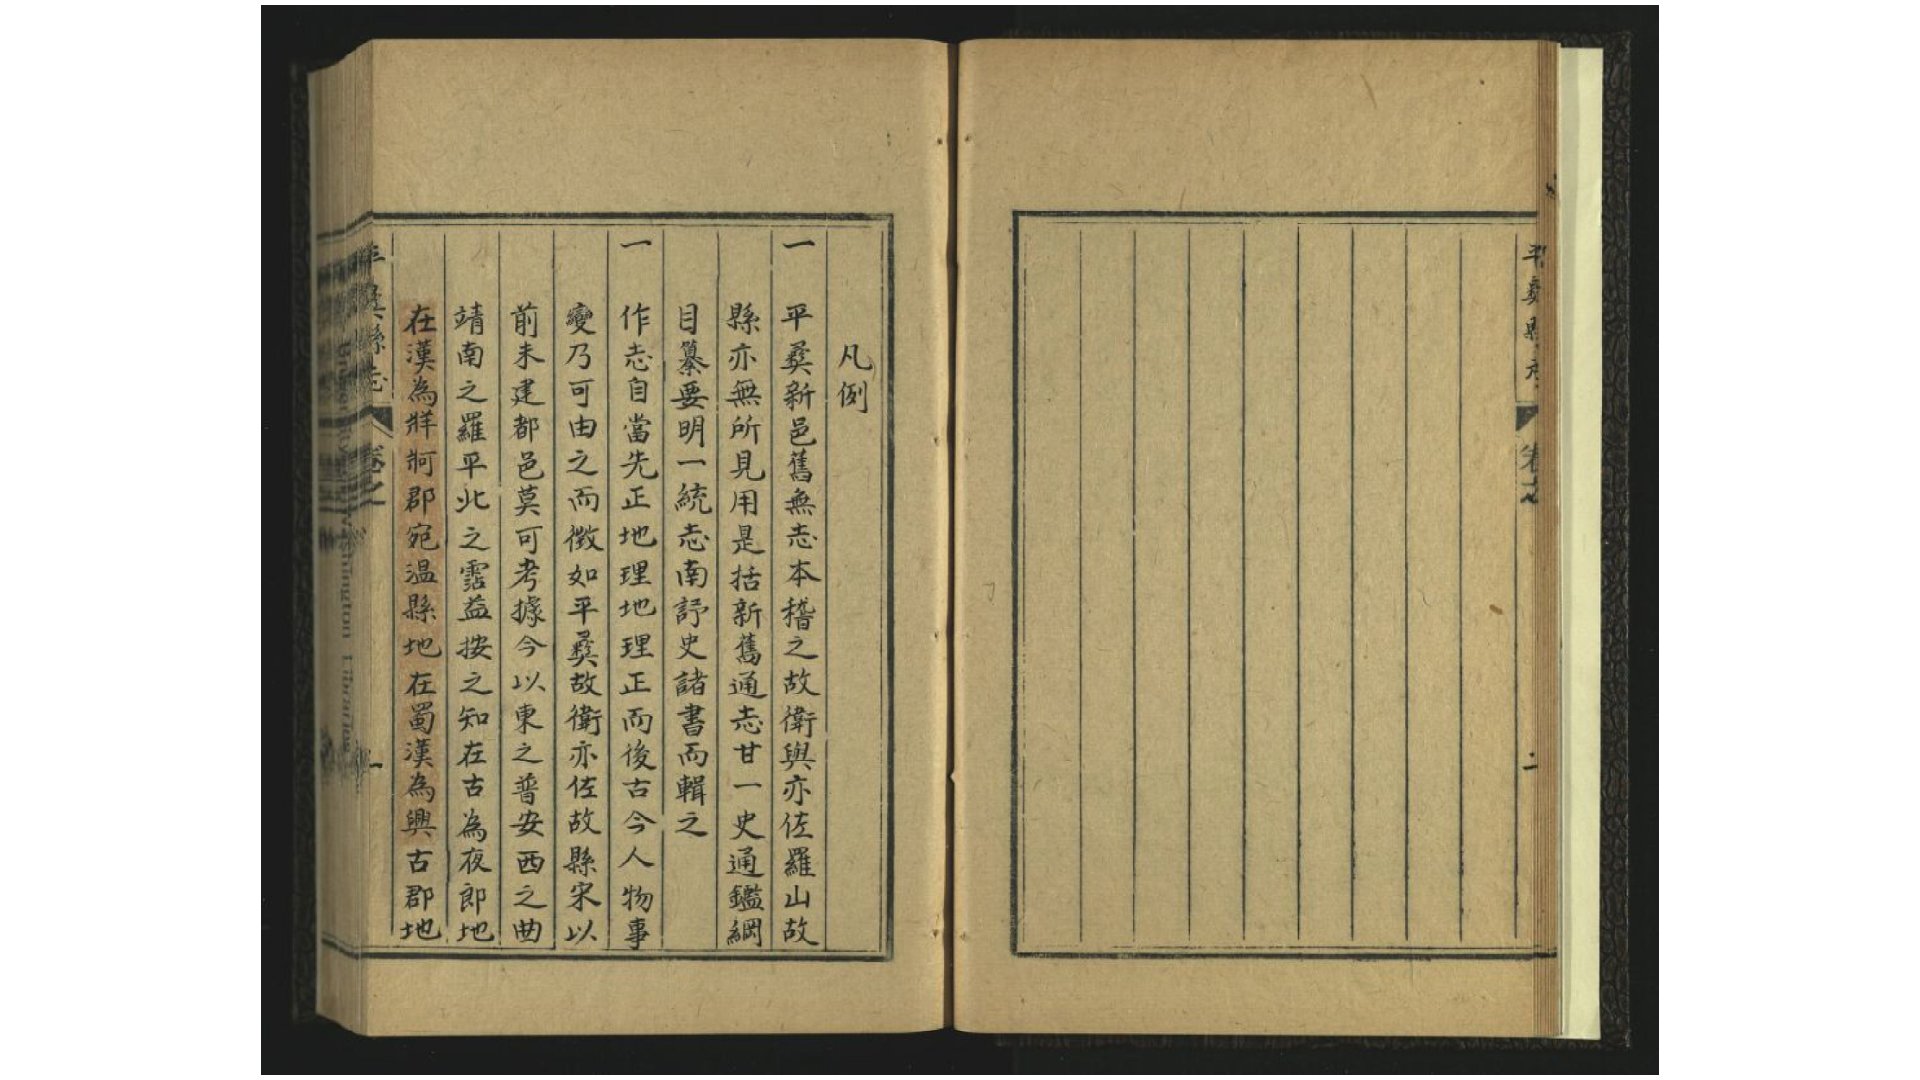 平彜縣志
卷之
二
凡例
一 平彜新邑舊無志本稽之故衛與亦佐羅山故
縣亦無所見用是括新舊通志甘一史通鑑綱
目纂要明一統志南詔史諸書而輯之
一 作志自當先正地理地理正而後古今人物事
變乃可由之而徵如平彜故衛亦佐故縣宋以
前未建都邑莫可考據今以東之普安西之曲
靖南之羅平北之霑益按之知在古為夜郎地
在漢為牂牁郡宛温縣地在蜀漢為興古郡地
平彜縣志
卷之
一